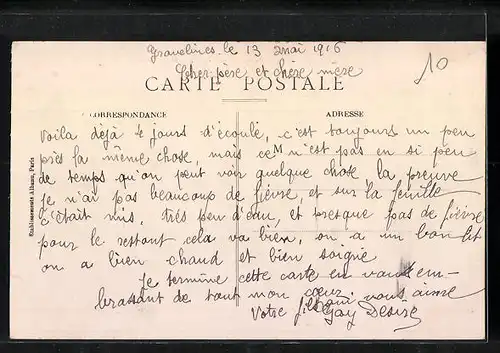 Gravelines, le 13 mai 1916
10
Cher père et chère mère
CARTE POSTALE
CORRESPONDANCE
ADRESSE
Voila déjà 4 jours d'écoulé, c'est toujours un peu
près la même chose, mais ce n'est pas en si peu
de temps qu'on peut voir quelque chose la preuve
je n'ai pas beaucoup de fièvre, et sur la feuille
c'était mis, très peu d'eau, et presque pas de fièvre
pour le restant cela va bien, on a un bon lit
on a bien chaud et bien soigné
Je termine cette carte en vous em-
brassant de tout mon cœur
Votre fils qui vous aime
Gay Désiré
Etablissements Albeau, Paris